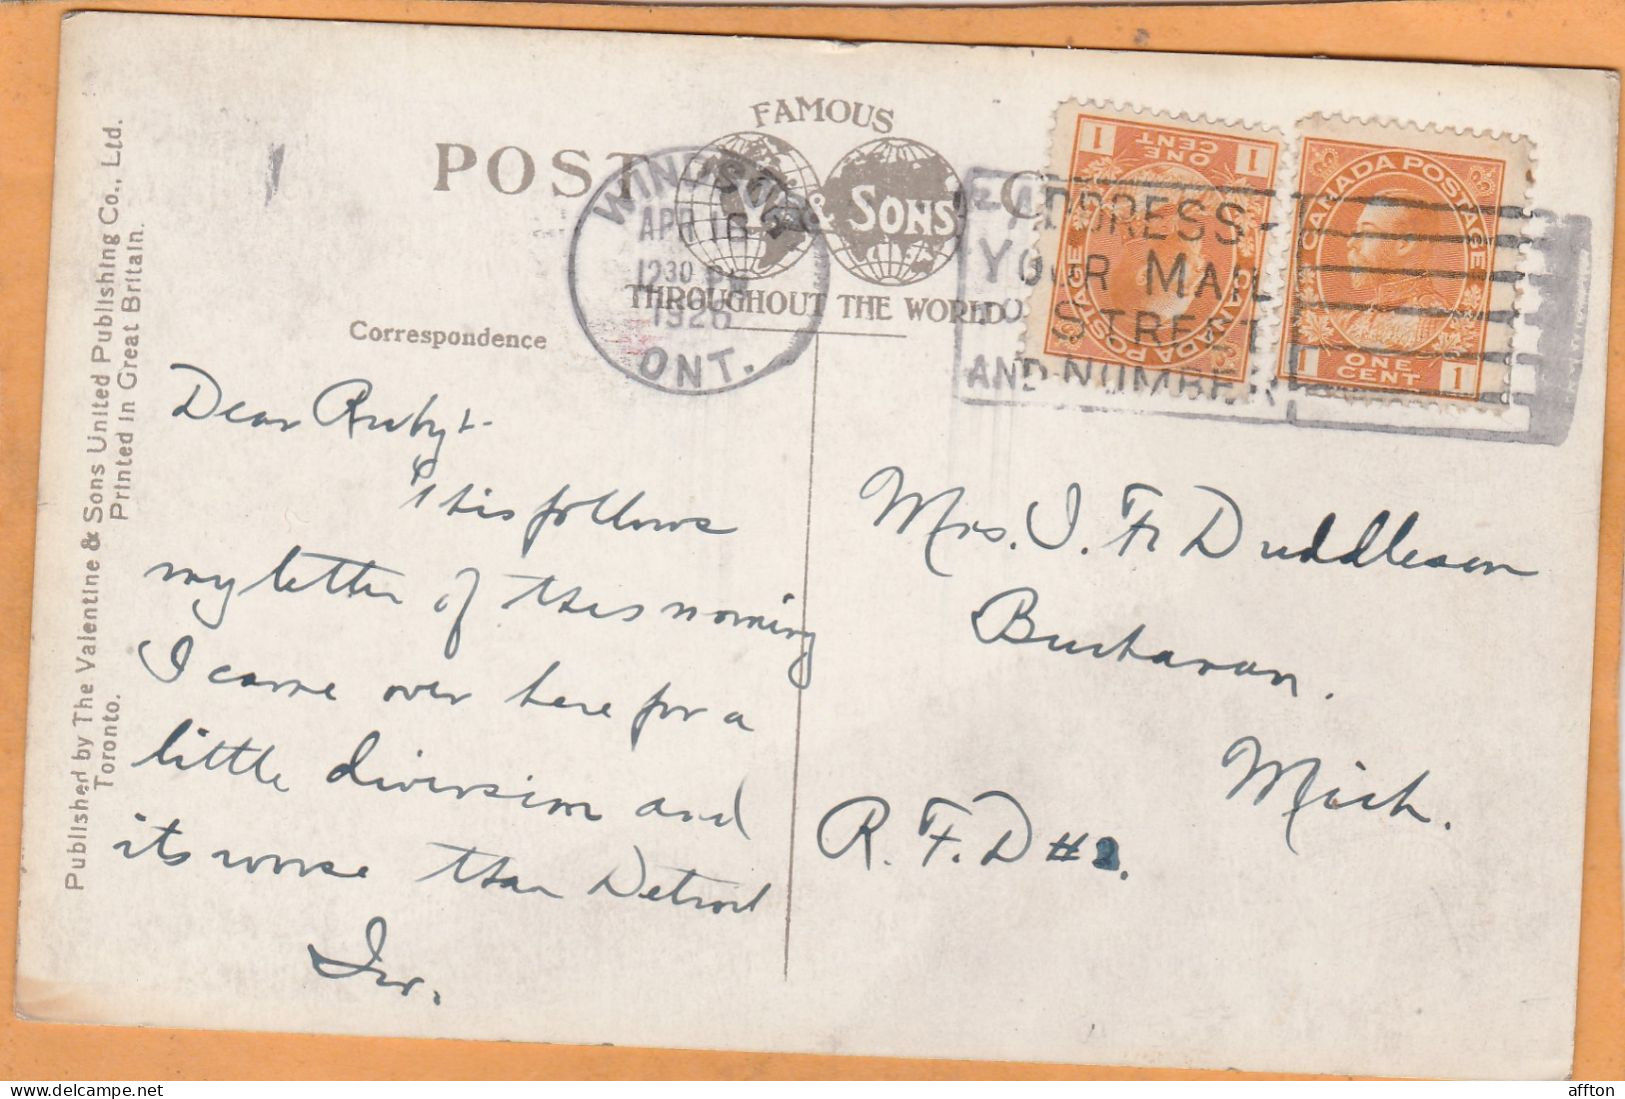 Published by The Valentine & Sons United Publishing Co., Ltd.
Toronto.
Printed in Great Britain.
POST C
FAMOUS
V & SONS
THROUGHOUT THE WORLD
WINDSOR
APR 16
1230 PM
1926
ONT.
ADDRESS
YOUR MAIL
STREET
AND NUMBER
1 ONE CENT 1
CANADA POSTAGE
CANADA POSTAGE
1 ONE CENT 1
Correspondence
Dear Ruby:-
This follows
my letter of this morning
I came over here for a
little diversion and
its worse than Detroit
Irv.
Mrs. I. F. Duddleson
Buchanan.
Mich.
R. F. D #2.
affton